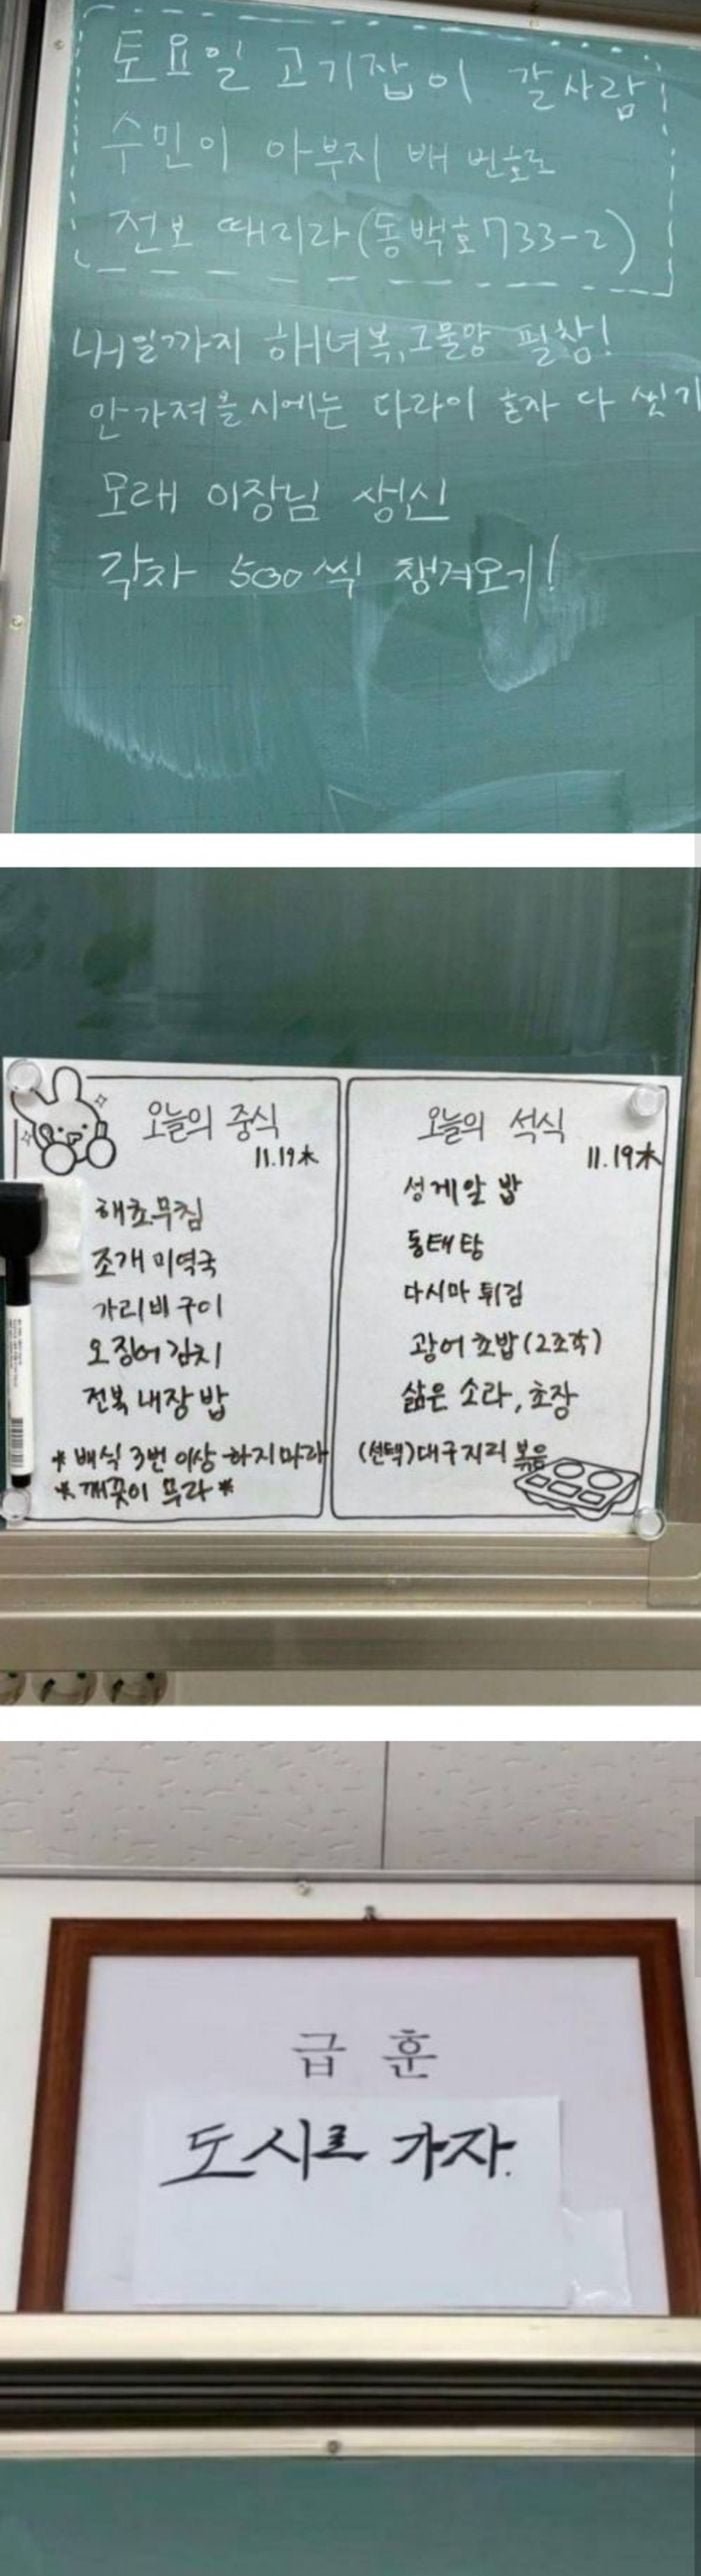 토요일 고기잡이 갈사람
수민이 아부지 배 번호로
전보 때리라(동백호733-2)
내일까지 해녀복,그물망 필참!
안가져올시에는 다라이 혼자 다 씻기
모래 이장님 생신
각자 500씩 챙겨오기!
오늘의 중식
11.19木
해초무침
조개미역국
가리비구이
오징어김치
전복내장밥
*배식 3번 이상 하지마라
*깨끗이 무라*
오늘의 석식
11.19木
성게알밥
동태탕
다시마튀김
광어초밥(2조각)
삶은 소라,초장
(선택)대구지리볶음
급훈
도시로 가자.